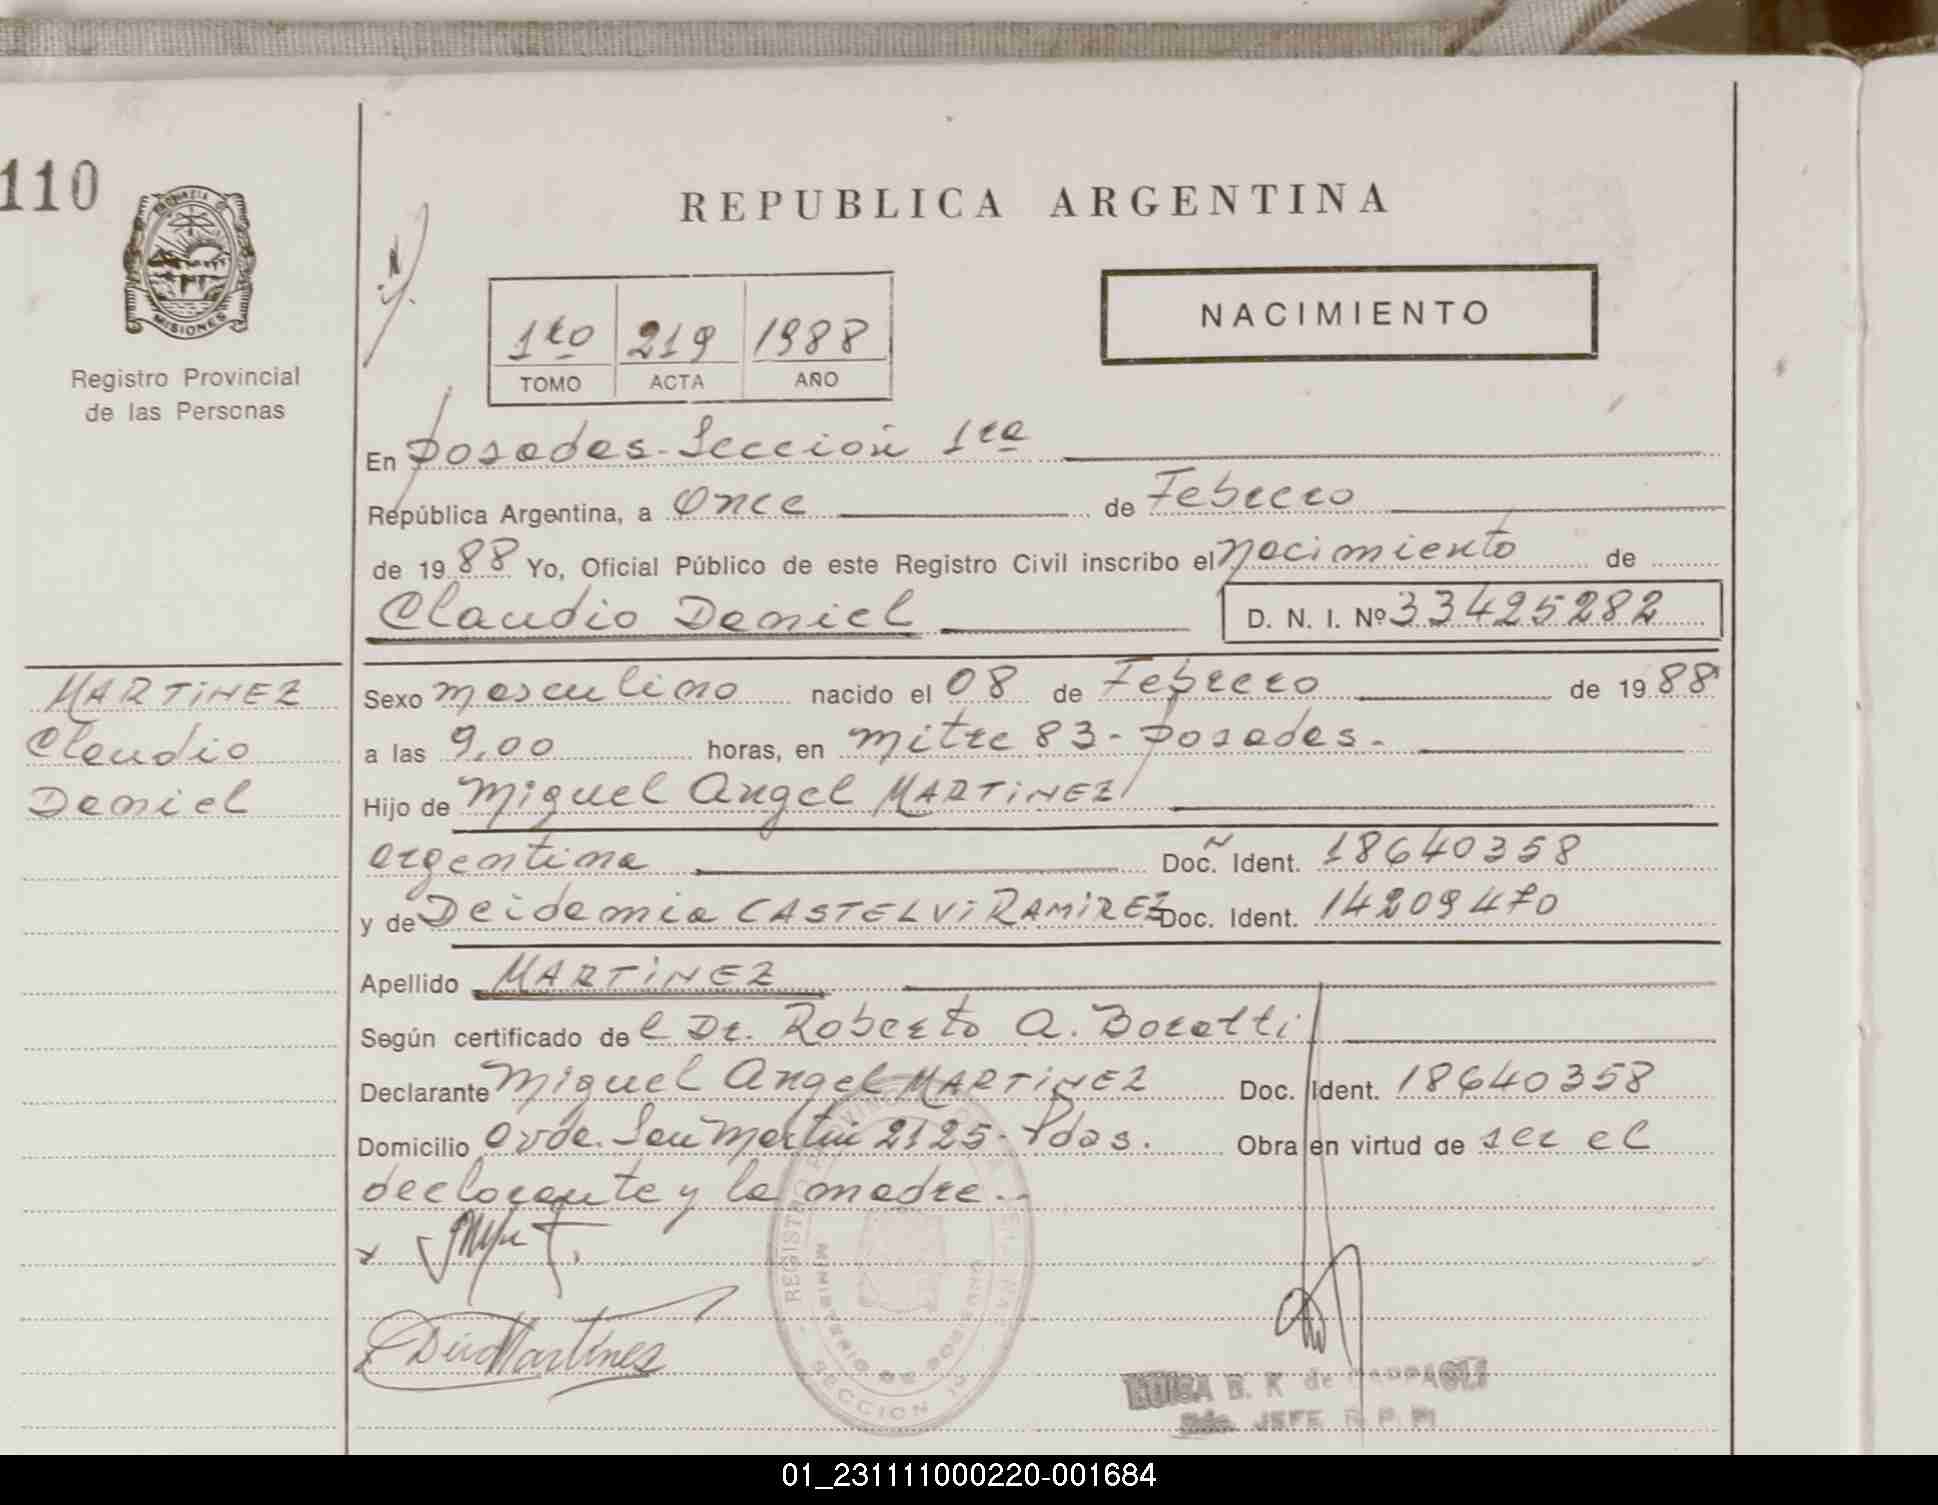 110
MISIONES
Registro Provincial
de las Personas
REPUBLICA ARGENTINA
NACIMIENTO
1ro 219 1988
TOMO ACTA AÑO
En Posadas-Sección 1ra
República Argentina, a Once de Febrero
de 1988 Yo, Oficial Público de este Registro Civil inscribo el Nacimiento de
Claudio Daniel D. N. I. Nº 33425282
MARTINEZ
Claudio
Daniel
Sexo masculino nacido el 08 de Febrero de 1988
a las 9,00 horas, en Mitre 83-Posadas.
Hijo de Miguel Angel MARTINEZ
argentina Doc. Ident. 18640358
y de Deidamia CASTELVI RAMIREZ Doc. Ident. 14209470
Apellido MARTINEZ
Según certificado del Dr. Roberto A. Boratti
Declarante Miguel Angel MARTINEZ Doc. Ident. 18640358
Domicilio Avda. San Martin 2125-Pdas. Obra en virtud de ser el
declarante y la madre.
Martinez
REGISTRO PROVINCIAL DE LAS PERSONAS
MINISTERIO DE GOBIERNO
SECCION
LUISA B. K de
JEFE R. P. P.
01_231111000220-001684